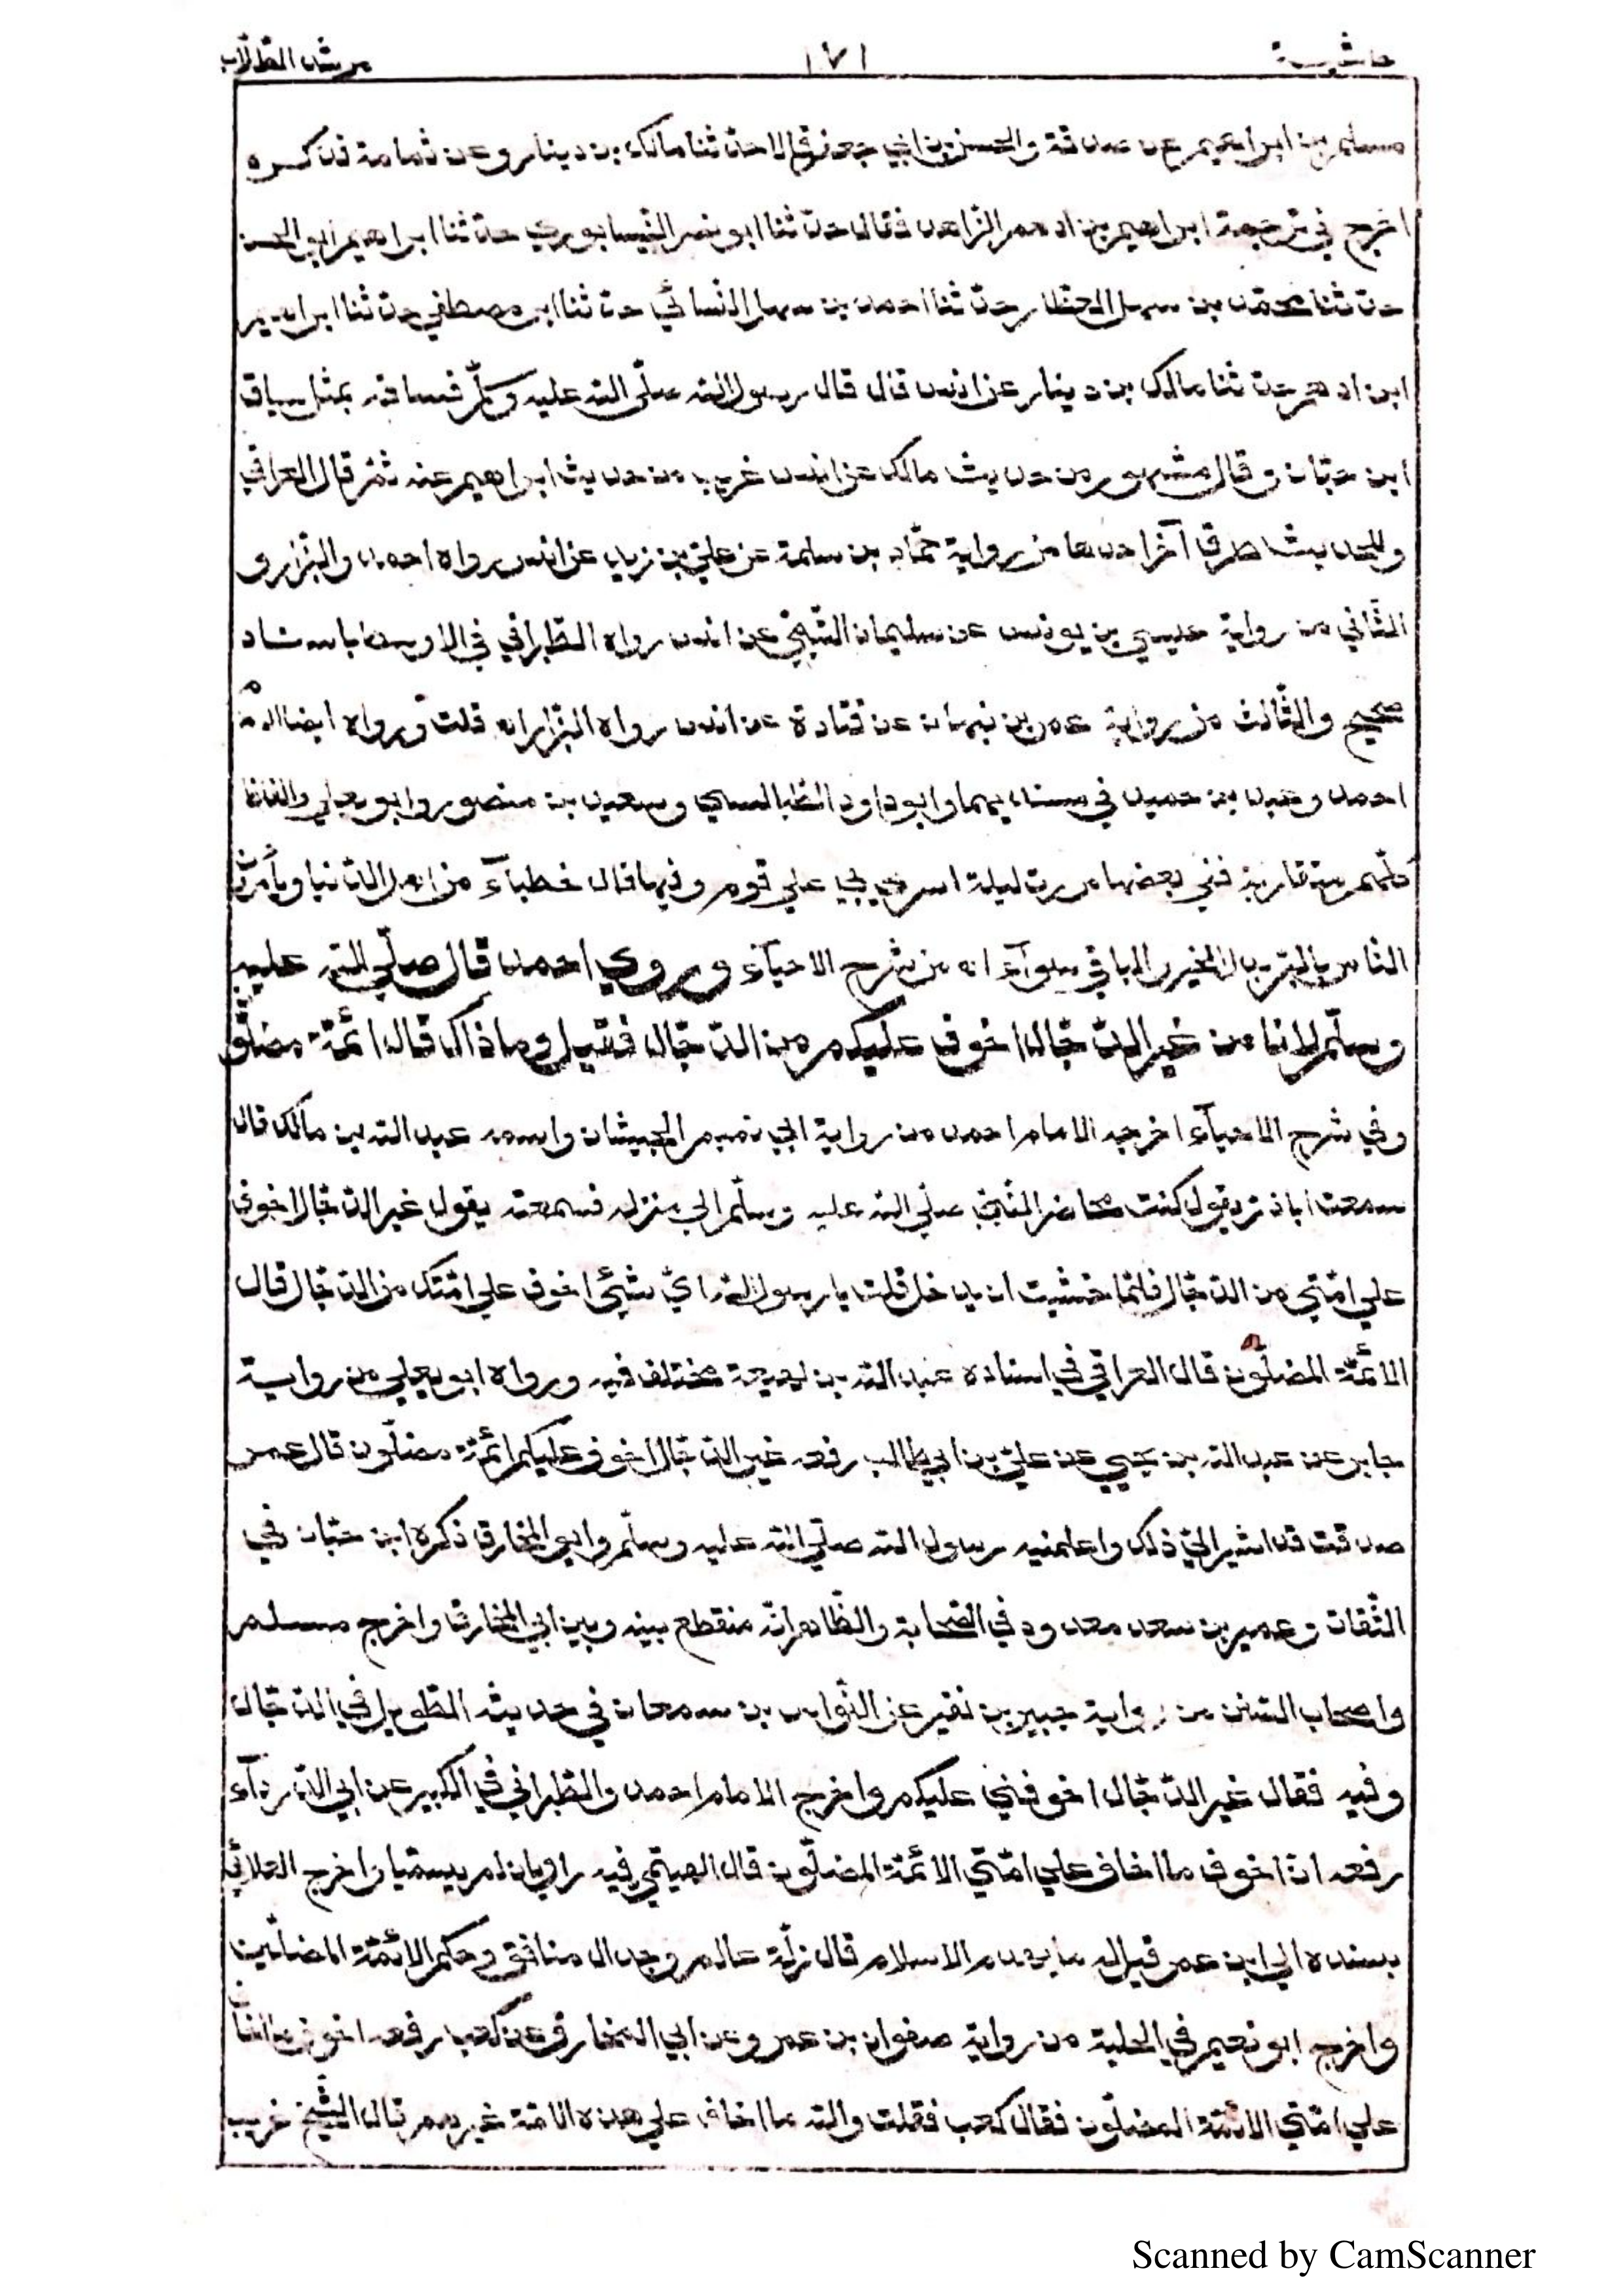 حاشية ١٧١ مرشد الطلاب
مسلم بن ابراهيم عن صدقة والحسن بن ابي جعفر قالا حدثنا مالك بن دينار وعن ثمامة فذكره
اخرج في ترجمة ابراهيم بن ادهم الزاهد فقال حدّثنا ابو نصر النيسابوري حدّثنا ابراهيم ابو الحسن
حدّثنا محمّد بن سهل العطار حدّثنا احمد بن سهل النسائي حدّثنا ابن مصطفي حدّثنا ابراهيم
ابن ادهم حدّثنا مالك بن دينار عن انس قال قال رسول الله صلّى الله عليه وسلّم فساقه بمثل سياق
ابن حبّان وقال مشهور من حديث مالك عن انس غريب من حديث ابراهيم عنه ثمّ قال العراقي
وللحديث طرق آخر احدها من رواية حمّاد بن سلمة عن عليّ بن زيد عن انس رواه احمد والبزّار و
الثّاني من رواية عيسي بن يونس عن سليمان التّيميّ عن انس رواه الطّبراني في الاوسط باسناد
صحيح والثّالث من رواية عمر بن نبهان عن قتادة عن انس رواه البزّار اه قلت ورواه ايضا
احمد وعبد بن حميد في مسنديهما وابو داود الطّيالسي وسعيد بن منصور وابو يعلي والفاظ
كلّهم متقاربة ففي بعضها مررت ليلة اسري بي علي قوم وفيها قال خطبآء من اهل الدّنيا ويأمرون
النّاس بالبرّ بدل الخير والباقي سوآء اه من شرح الاحيآء وروي احمد قال صلّي الله عليه
وسلّم لانا من غير الدّجّال اخوف عليكم من الدّجّال فقيل وما ذاك قال ائمّة مضلّون
وفي شرح الاحيآء اخرجه الامام احمد من رواية ابي تميم الجيشان واسمه عبد الله بن مالك قال
سمعت اباذرّ يقول كنت محاضر النّبيّ صلّي الله عليه وسلّم الي منزله فسمعته يقول غير الدّجّال اخوف
علي امّتي من الدّجّال فلمّا خشيت ان يدخل قلت يا رسول الله ايّ شيئ اخوف علي امّتك من الدّجّال قال
الائمّة المضلّون قال العراقي في اسناده عبد الله بن لهيعة مختلف فيه ورواه ابو يعلي من رواية
جابر عن عبد الله بن يحيي عن عليّ بن ابي طالب رفعه غير الدّجّال اخوف عليكم ائمّة مضلّون قال عمر
صدقت قد اشير اليّ ذلك واعلمنيه رسول الله صلّي الله عليه وسلّم وابو المخارق ذكره ابن حبّان في
الثّقات وعمير بن سعد معدود في الصّحابة والظّاهر انّه منقطع بينه وبين ابي المخارق واخرج مسلم
واصحاب السّنن من رواية جبير بن نفير عن النّواس بن سمعان في حديثه الطّويل في الدّجّال
وفيه فقال غير الدّجّال اخوفني عليكم واخرج الامام احمد والطّبراني في الكبير عن ابي الدّردآء
رفعه انّ اخوف ما اخاف علي امّتي الائمّة المضلّون قال الهيثمي فيه راويان لم يسمّيا واخرج الثلاثة
بسنده الي ابن عمر قيل له ما يهدم الاسلام قال زلّة عالم وجدال منافق وحكم الائمّة المضلّين
واخرج ابو نعيم في الحلية من رواية صفوان بن عمرو عن ابي المخارق عن كعب رفعه اخوف ما اخاف
علي امّتي الائمّة المضلّون فقال كعب فقلت والله ما اخاف علي هذه الامّة غيرهم قال الشّيخ غريب
Scanned by CamScanner